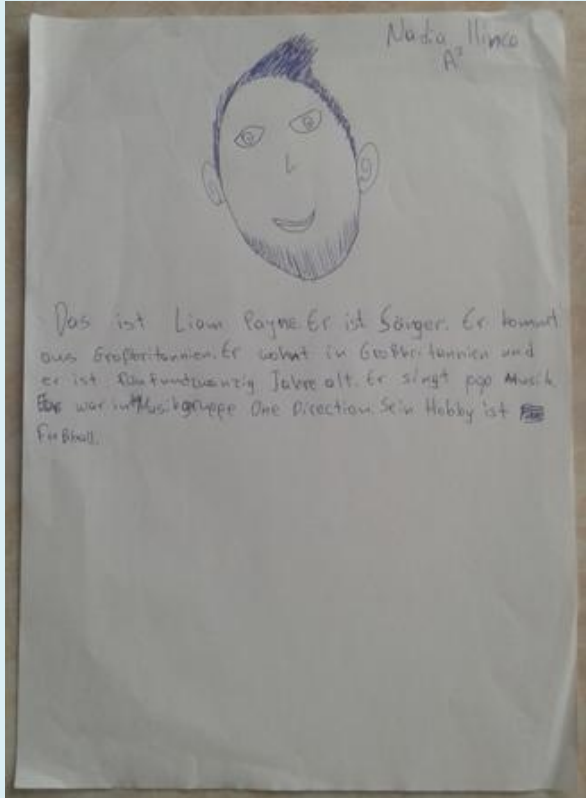 Nadia Ilinca
A²
Das ist Liam Payne. Er ist Sänger. Er kommt
aus Großbritannien. Er wohnt in Großbritannien und
er ist fünfundzwanzig Jahre alt. Er singt pop Musik.
Er war in Musikgruppe One Direction. Sein Hobby ist
Fußball.